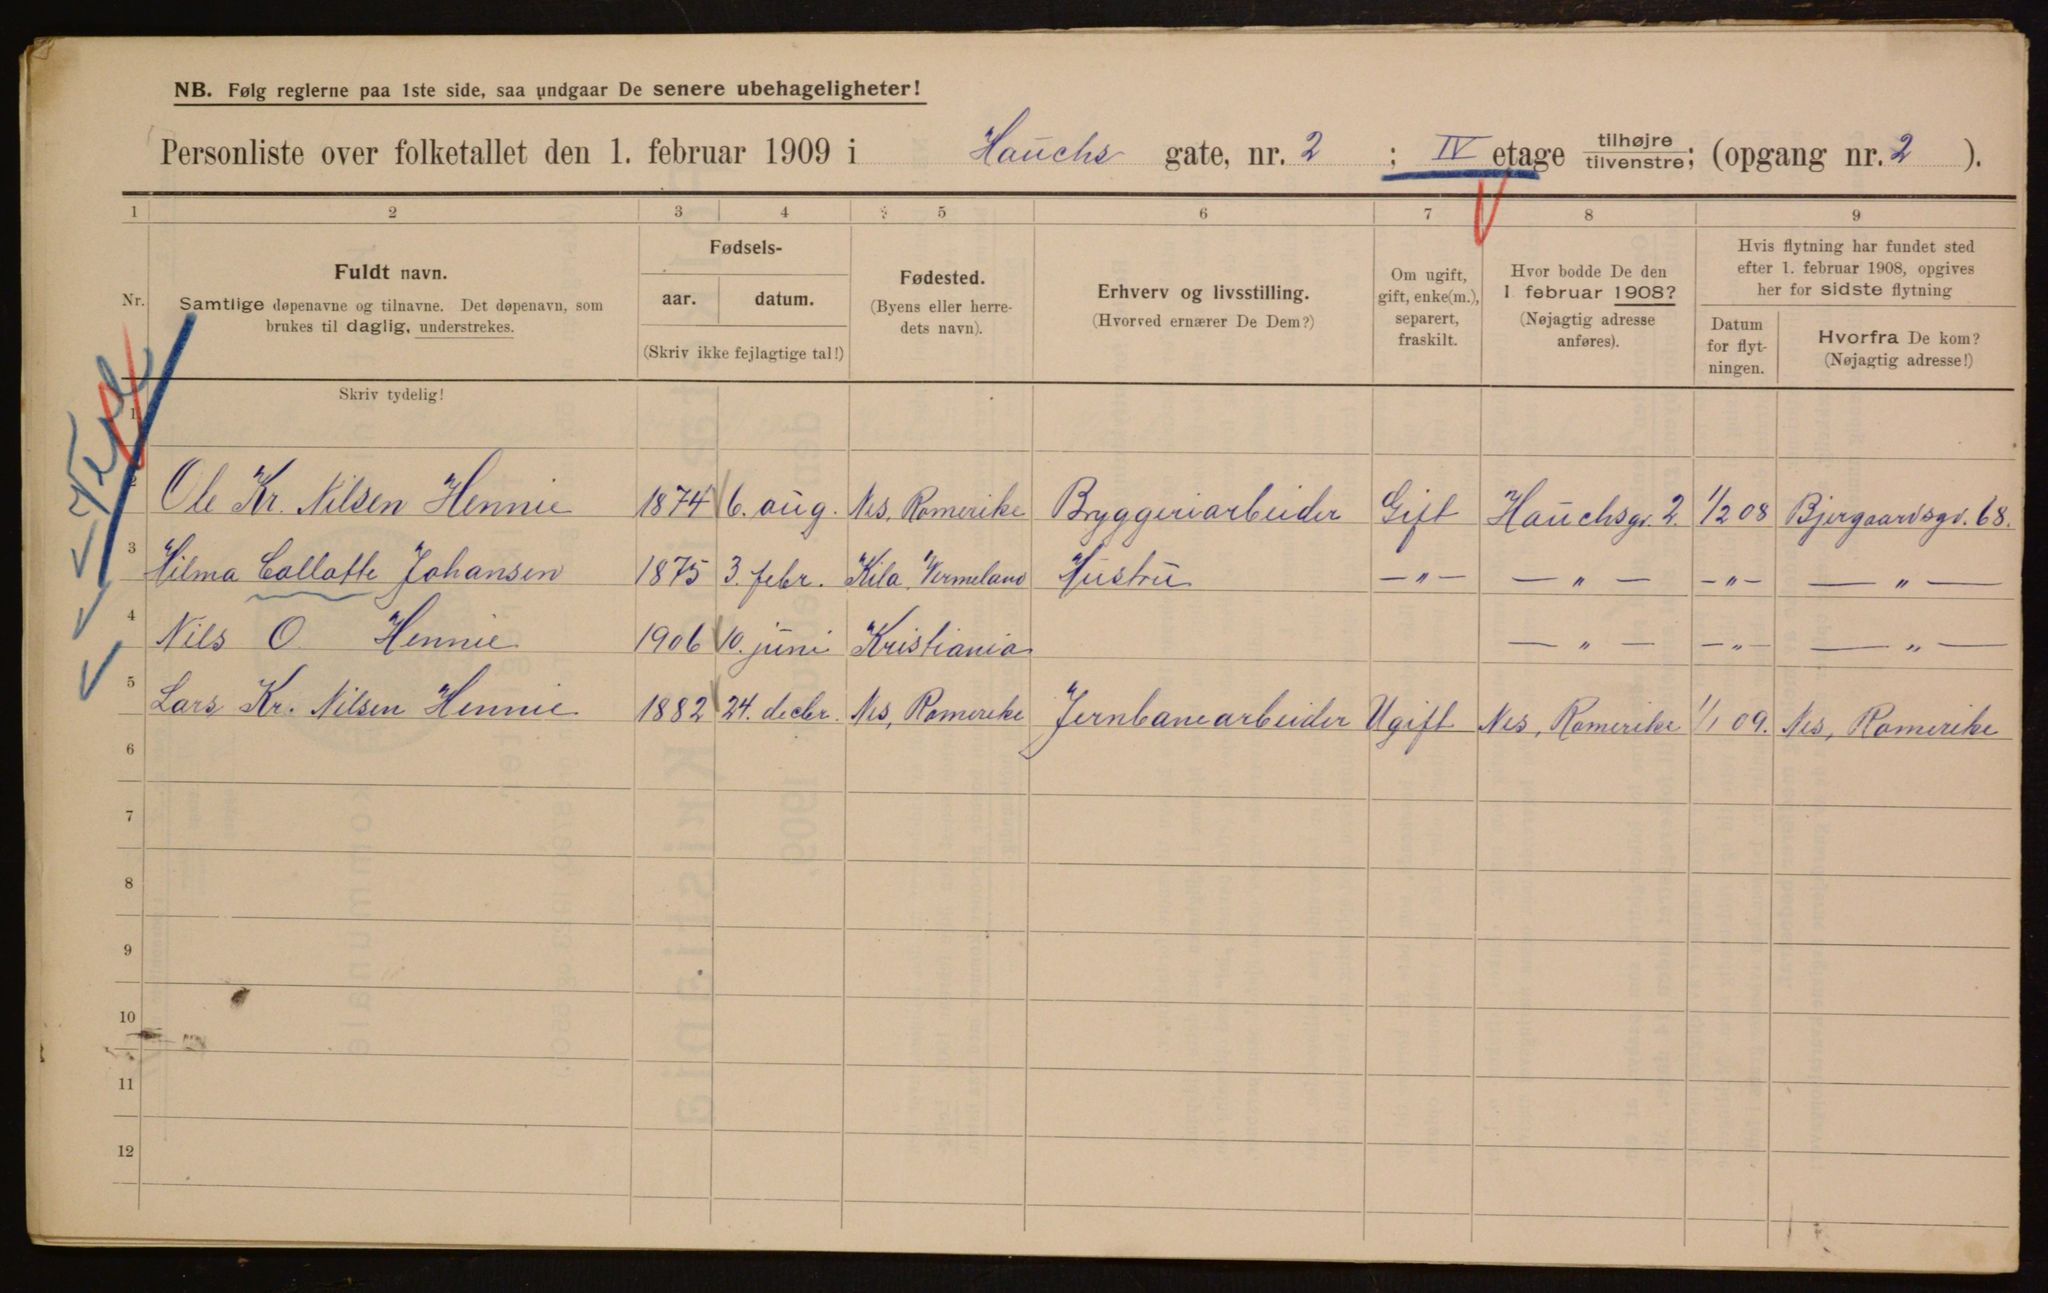 NB. Følg reglerne paa 1ste side, saa undgaar De senere ubehageligheter!
Personliste over folketallet den 1. februar 1909 i Hauchs gate, nr. 2 ; IV etage tilhøjre tilvenstre; (opgang nr. 2 ).
1 2 3 4 5 6 7 8 9
Nr.
Fuldt navn.
Samtlige døpenavne og tilnavne. Det døpenavn, som
brukes til daglig, understrekes.
Skriv tydelig!
Fødsels-
aar. datum.
(Skriv ikke fejlagtige tal!)
Fødested.
(Byens eller herre-
dets navn).
Erhverv og livsstilling.
(Hvorved ernærer De Dem?)
Om ugift,
gift, enke(m.),
separert,
fraskilt.
Hvor bodde De den
1. februar 1908?
(Nøjagtig adresse
anføres).
Hvis flytning har fundet sted
efter 1. februar 1908, opgives
her for sidste flytning
Datum
for flyt-
ningen.
Hvorfra De kom?
(Nøjagtig adresse!)
1
2 Ole Kr. Nilsen Hennie 1874 6. aug. Nes, Romerike Bryggeriarbeider Gift Hauchsgt. 2. 1/2 08 Bjergaardsgt. 68.
3 Hilma Collotte Johansen 1875 3. febr. Kila, Vermeland Hustru — " — — " — — " — — " —
4 Nils O. Hennie 1906 10. juni Kristiania — " — — " — — " —
5 Lars Kr. Nilsen Hennie 1882 24. decbr. Nes, Romerike Jernbanearbeider Ugift Nes, Romerike 1/1 09. Nes, Romerike
6
7
8
9
10
11
12